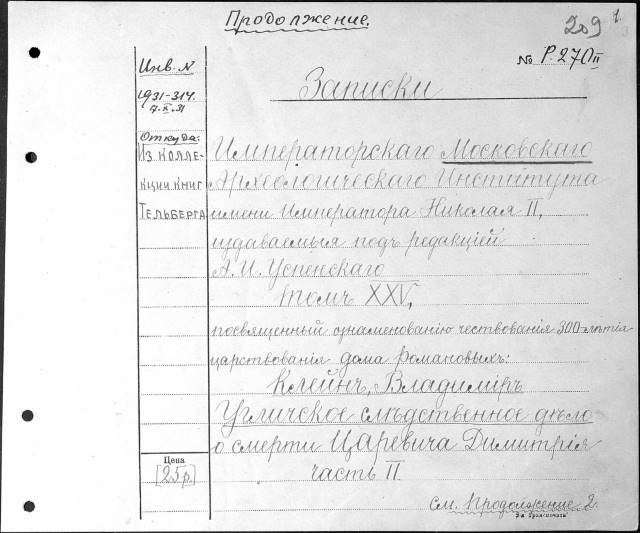 Продолжение.
209 1.
№ Р.270 II
Инв. N
1931-314.
7.X.31
Откуда:
Из колле-
кции книг
Тельберга
Записки
Императорскаго Московскаго
Археологическаго Института
имени Императора Николая II,
издаваемыя подъ редакціей
А.И. Успенскаго
томъ XXV,
посвященный ознаменованію чествованія 300-лѣтія
царствованія дома Романовыхъ:
Клейнъ, Владиміръ
Угличское слѣдственное дѣло
о смерти Царевича Димитрія
часть II.
Цена
[25р.]
см. Продолжение 2.